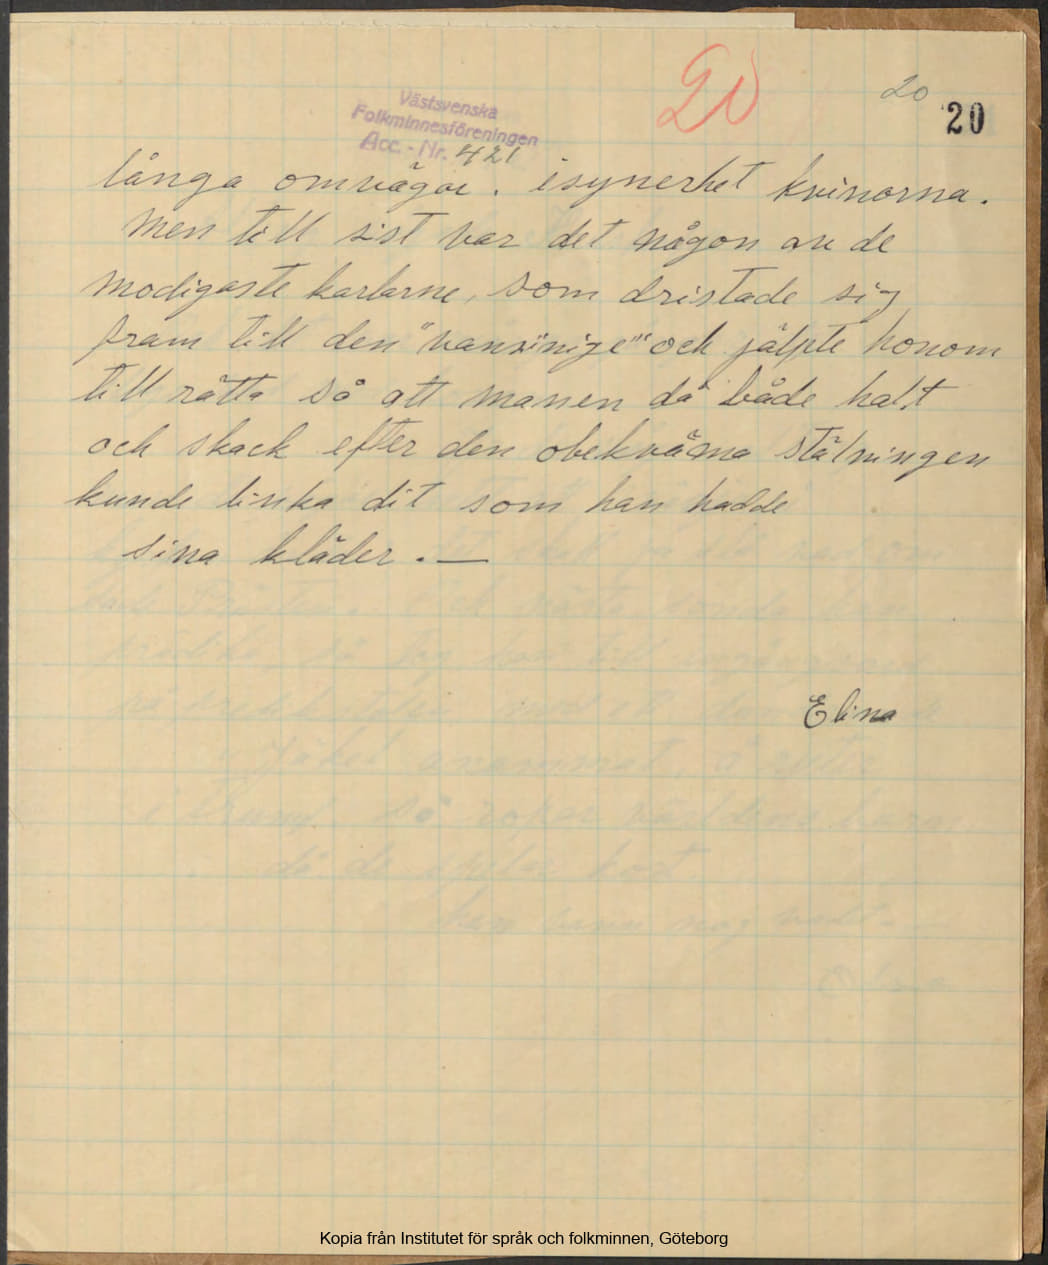 20
20
20
Västsvenska
Folkminnesföreningen
Acc. - Nr. 421
långa omvägar. isynerhet kvinorna.
Men till sist var det någon av de
modigaste karlarne, som dristade sig
fram till den "vansinige" och jälpte honom
till rätta så att manen då både halt
och skack efter den obekväma stälningen
kunde linka dit som han hadde
sina kläder. —
Elina
Kopia från Institutet för språk och folkminnen, Göteborg